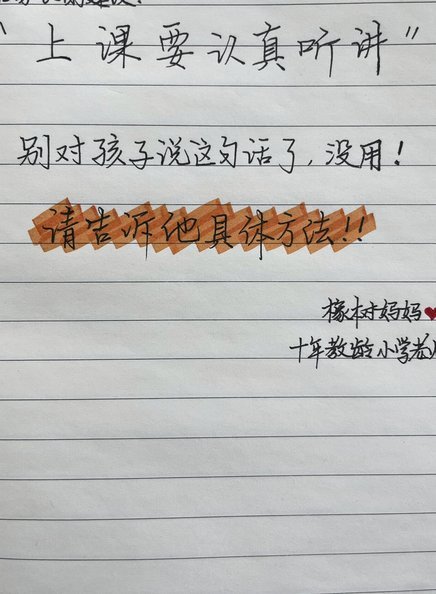 "上课要认真听讲"
别对孩子说这句话了,没用!
请告诉他具体方法!!
橡树妈妈
十年教龄小学老